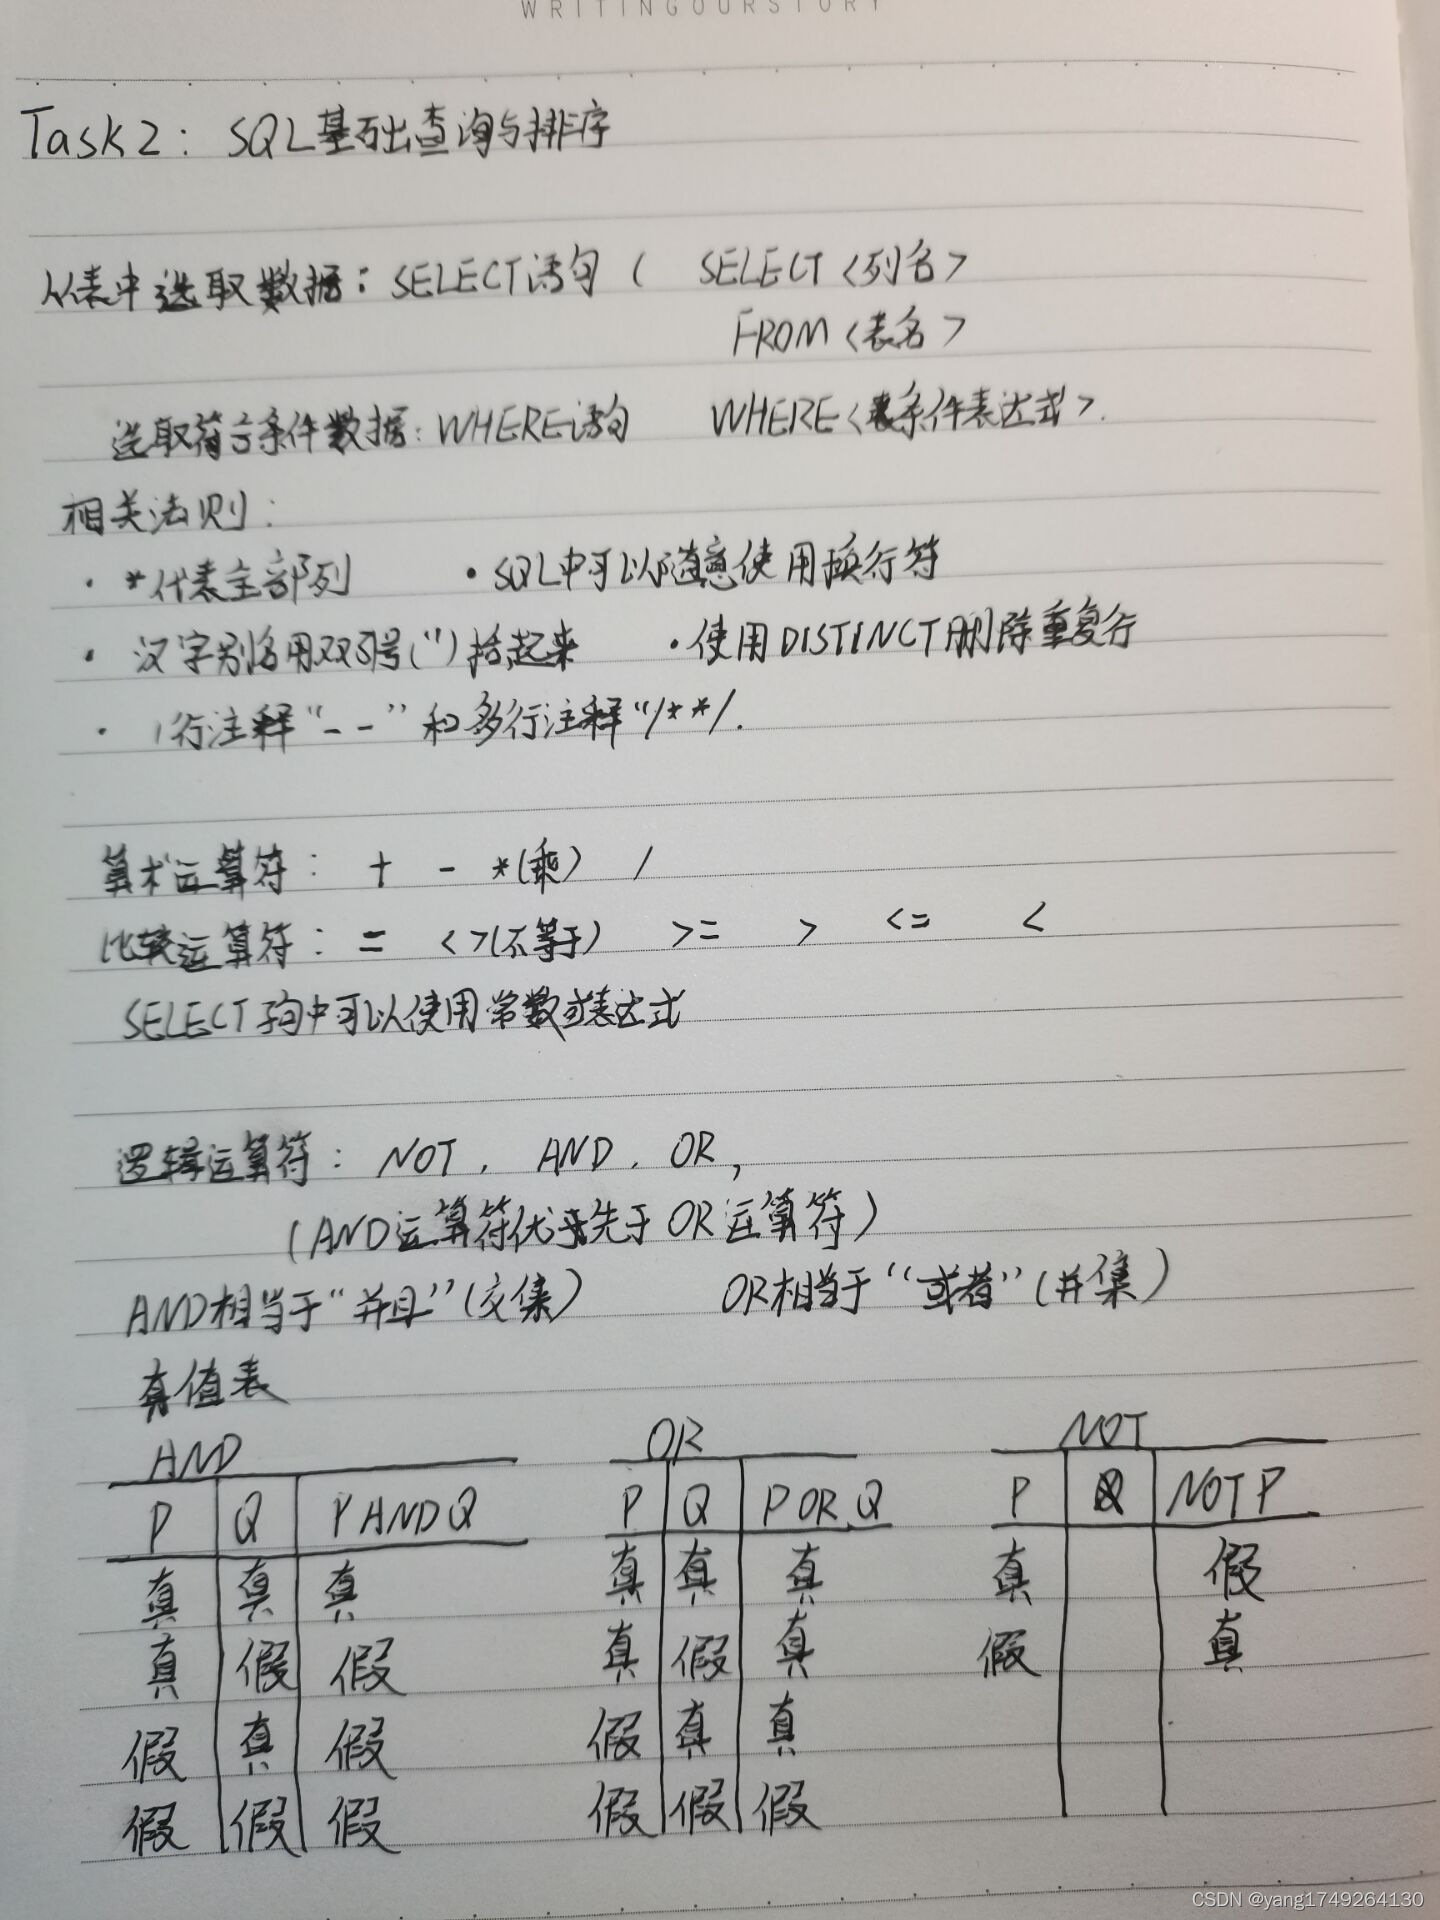 WRITINGOURSTORY
Task2: SQL基础查询与排序
从表中选取数据：SELECT语句（ SELECT <列名>
FROM <表名>
选取符合条件数据：WHERE语句 WHERE <条件表达式>.
相关法则：
· *代表全部列 · SQL中可以随意使用换行符
· 汉字别名用双引号(")括起来 · 使用DISTINCT删除重复行
· 1行注释“--”和多行注释“/**/.
算术运算符： + - *(乘) /
比较运算符： = <>(不等于) >= > <= <
SELECT子句中可以使用常数或表达式
逻辑运算符： NOT. AND. OR,
（AND运算符优先于OR运算符）
AND相当于“并且”(交集) OR相当于“或者”(并集)
真值表
AND OR NOT
P Q P AND Q P Q P OR Q P NOT P
真 真 真 真 真 真 真 假
真 假 假 真 假 真 假 真
假 真 假 假 真 真
假 假 假 假 假 假
CSDN @yang1749264130